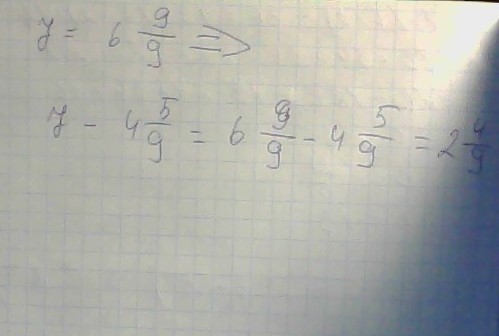 7 = 6 9/9 =>
7 - 4 5/9 = 6 9/9 - 4 5/9 = 2 4/9